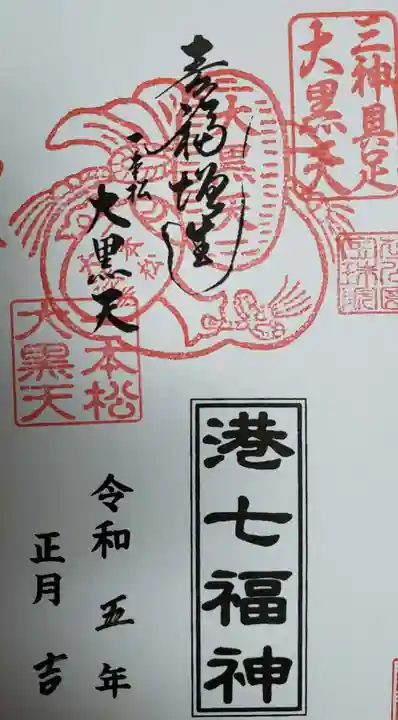 三神具足
大黒天
寿福増生
一本松
大黒天
大黒天
一本松
大黒天
港七福神
令和五年
正月吉